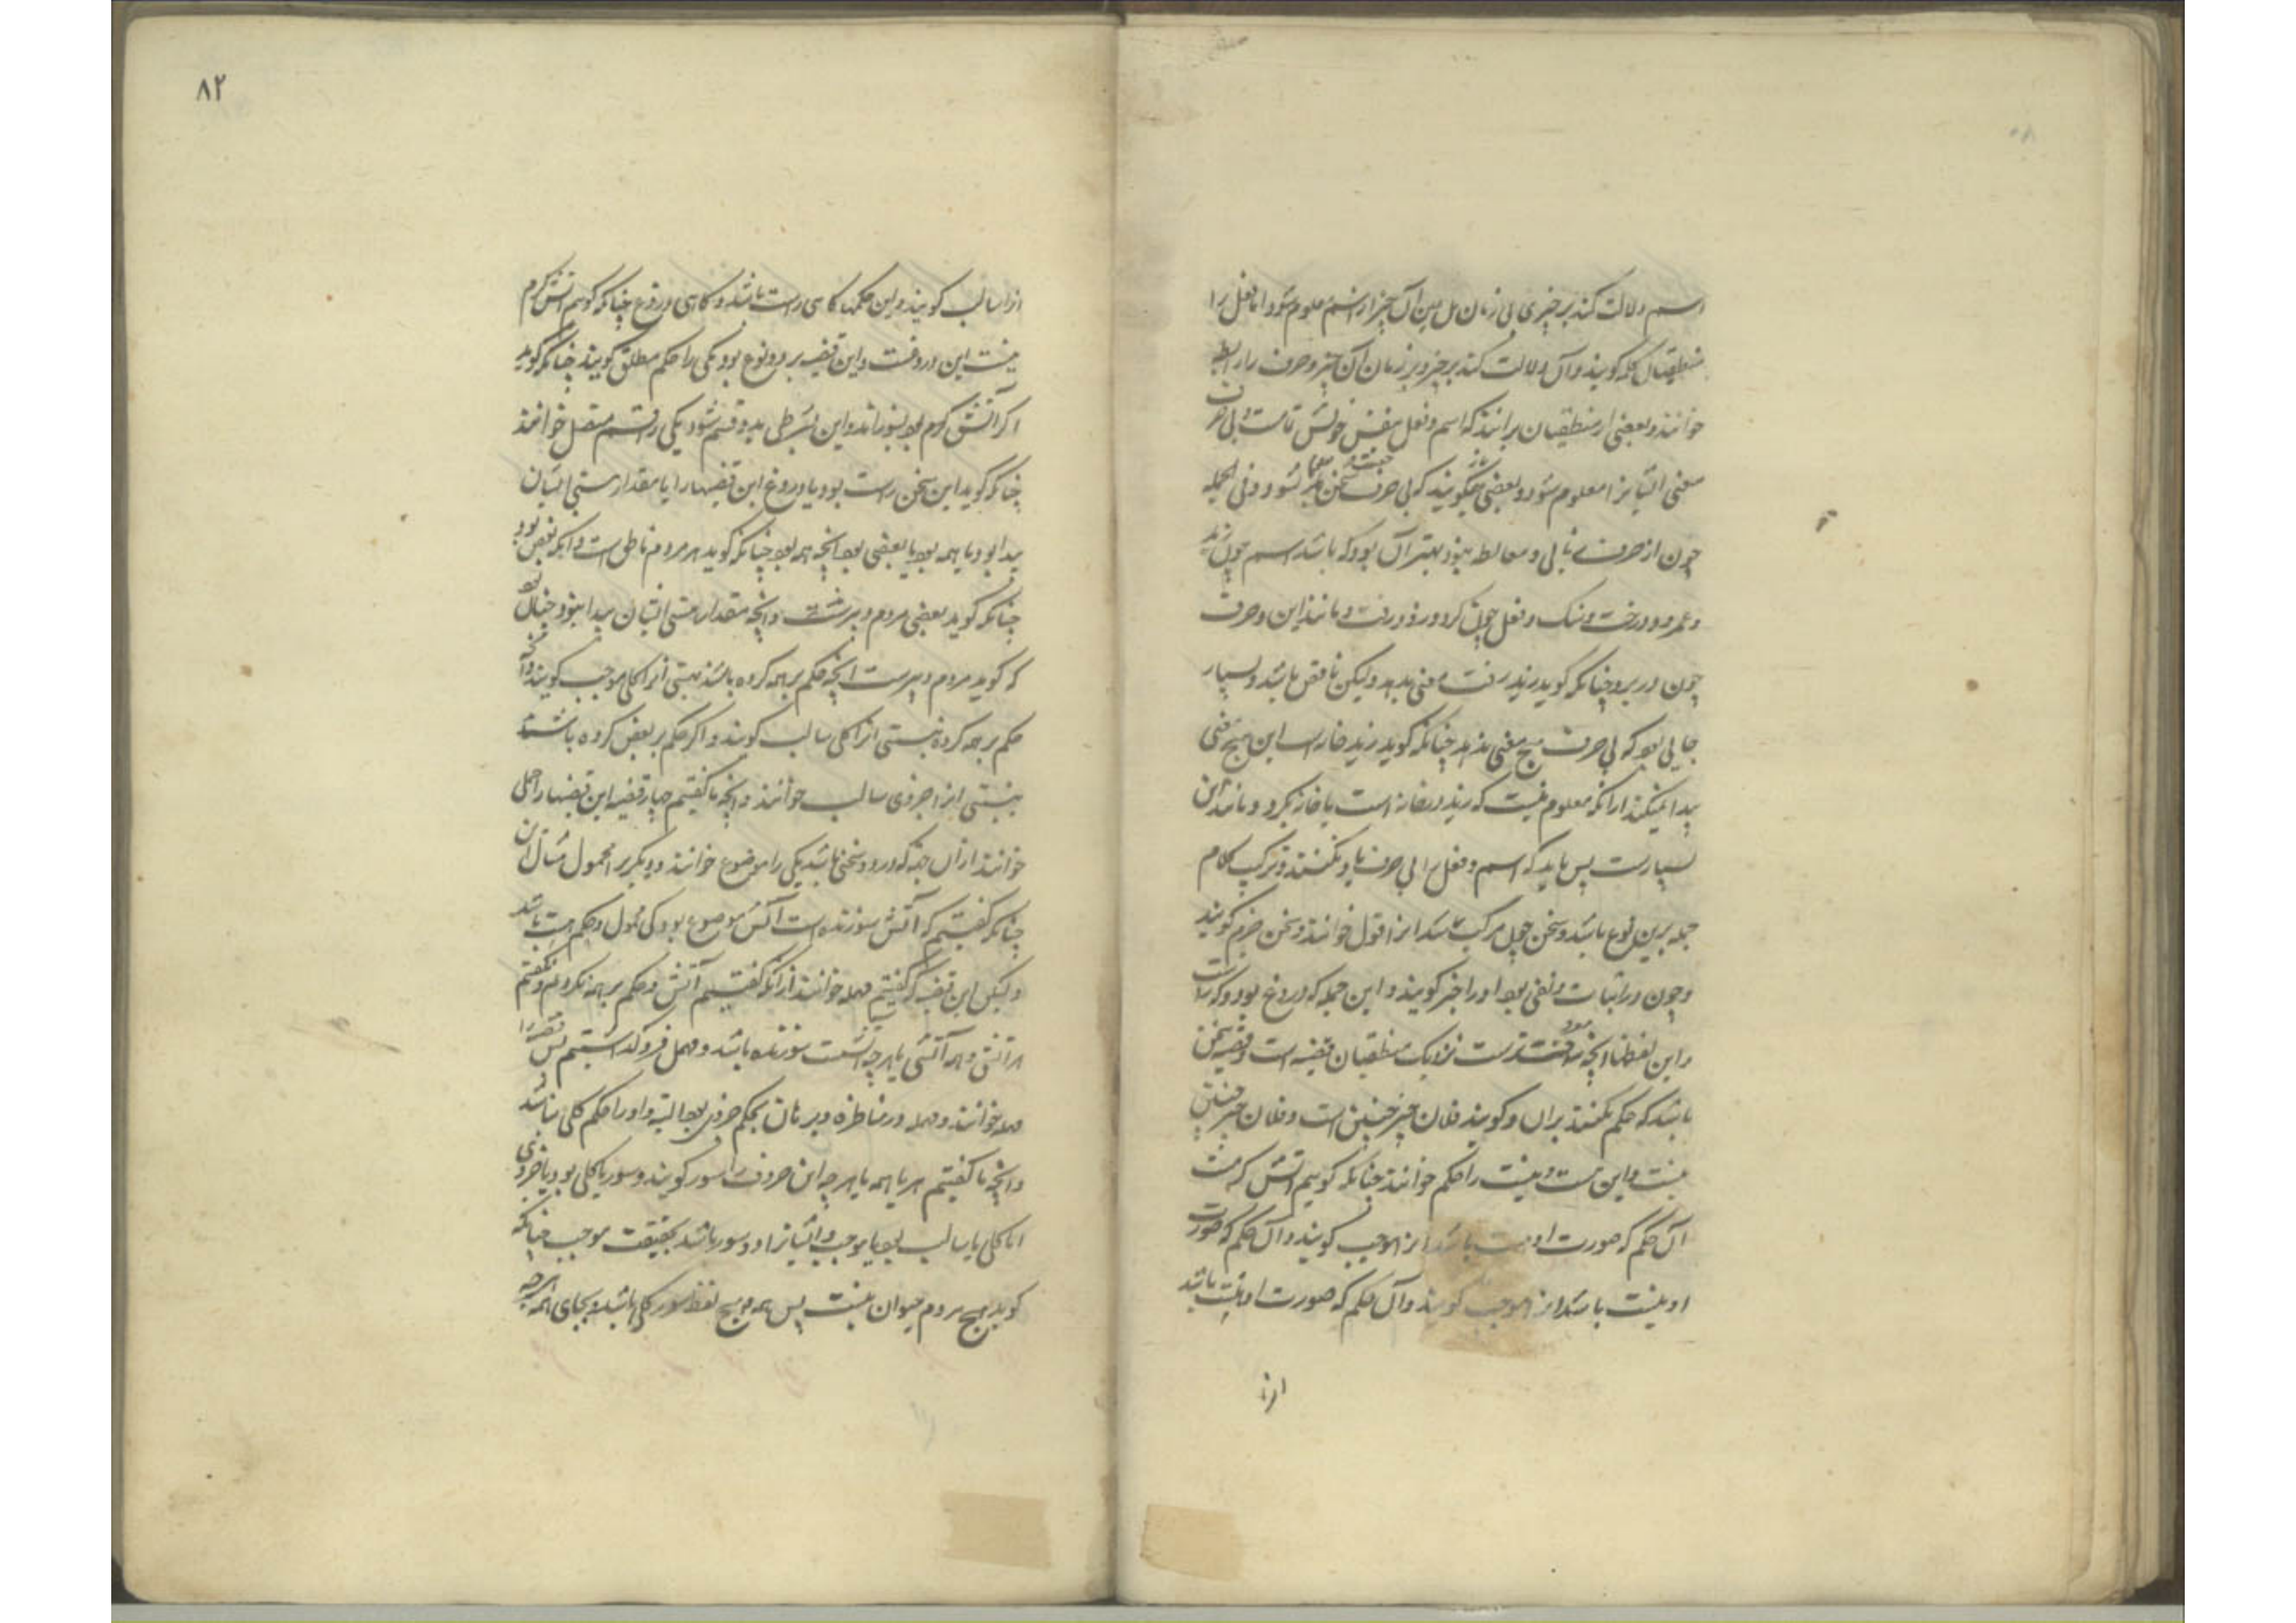 اسم دلالت کند بر چیزی بی زمان بل عین آن چیز از اسم معلوم شود اما فعل را
منطقیان کلمه گویند و آن دلالت کند بر چیز و بر زمان آن چیز و حرف را رابطه
خوانند و بعضی از منطقیان برانند که اسم و فعل بنفس خویش تمامست و بی حرف
معنی ایشانرا معلوم شود و بعضی میگویند که بی حرف سخن نشود و فی الجمله
چون از حرف و معالط بهتر آن بود که باشد اسم چون زید
و عمرو و درخت و سنک و فعل چون کرد و رود و رفت و مانند این و حرف
چون در بر و چنانکه گوید زید رفت معنی بدهد ولیکن ناقص باشد و بسیار
جایی بود که بی حرف هیچ معنی ندهد چنانکه گوید زید خانه است این هیچ معنی
پیدا نمیکند ازانکه معلوم نیست که زید در خانه است یا خانه کرد و مانند این
بسیارست پس باید که اسم و فعل را بی حرف یاد نکنند و ترکیب کلام
جمله برین نوع باشد و سخن چون مرکب باشد انرا قول خوانند و سخن جزم گویند
و چون در اثبات و نفی بود او را خبر گویند و این جمله که دروغ بود و که راست
و این لفظها انچه نزدیک منطقیان قضیه است و قضیه سخن
باشد که حکم بکنند بران و گویند فلان چیز چنین است و فلان چیز چنین
نیست و این هست و نیست را حکم خوانند چنانکه گوییم اتش کرمست
آن حکم که صورت او هست باشد انرا موجب گویند و آن حکم که صورت
او نیست باشد انرا موجب گویند و آن حکم که صورت او نیست باشد
انرا
۸۲
انرا سالب گویند و این حکمها گاهی راست باشد و گاهی دروغ چنانکه گویم اتش کرم
نیست این دروغست و این قضیه بر دو نوع بود یکی را حکم مطلق گویند چنانکه گوید
اگر آتش کرم بود بسوزاند و این شرطی بدو قسم شود یکی را قسم متصل خوانند
چنانکه گوید این سخن راست بود یا دروغ این قضیهارا یا مقدار هستی ایشان
پیدا بود یا همه بود یا بعضی بود انچه همه بود چنانکه گوید هر مردم ناطق است و انکه بعضی بود
چنانکه گوید بعضی مردم دبیرست و انچه مقدار هستی ایشان پیدا نبود چنان بود
که گوید مردم دبیرست انچه حکم بر همه کرده باشند بهستی انرا کلی موجب گویند و اگر
حکم بر همه کرده بنیستی انرا کلی سالب گویند و اگر حکم بر بعض کرده باشند
بنیستی انرا جزوی سالب خوانند و انچه ما گفتیم چهار قضیه این قضیهارا حملی
خوانند ازان جهت که درو دو سخن باشد یکی را موضوع خوانند و دیگر را محمول مثال آن
چنانکه گفتیم که آتش سوزنده است آتش موضوع بود و محمول و حکم هست باشد
ولیکن این قضیه که گفتیم مهمله خوانند ازانکه گفتیم آتش و حکم بر همه نکردیم و نگفتیم
هر آتش و همه آتشی یا هر چه آتشست سوزنده باشد و مهمل فرو گذاشتیم پس قضیه را
مهمله خوانند و مهمله در مناظره و برهان بحکم جزوی بود البته و او را حکم کلی نباشد
و انچه ما گفتیم هر یا همه یا هر چه این حروف را سور گویند و سور یا کلی بود یا جزوی
اما کلی یا سالب بود یا موجب و ایشانرا دو سور باشد بحقیقت موجب چنانکه
گوید هیچ مردم حیوان نیست پس همه و هیچ لفظ سور کلی باشد و بجای همه هرچه